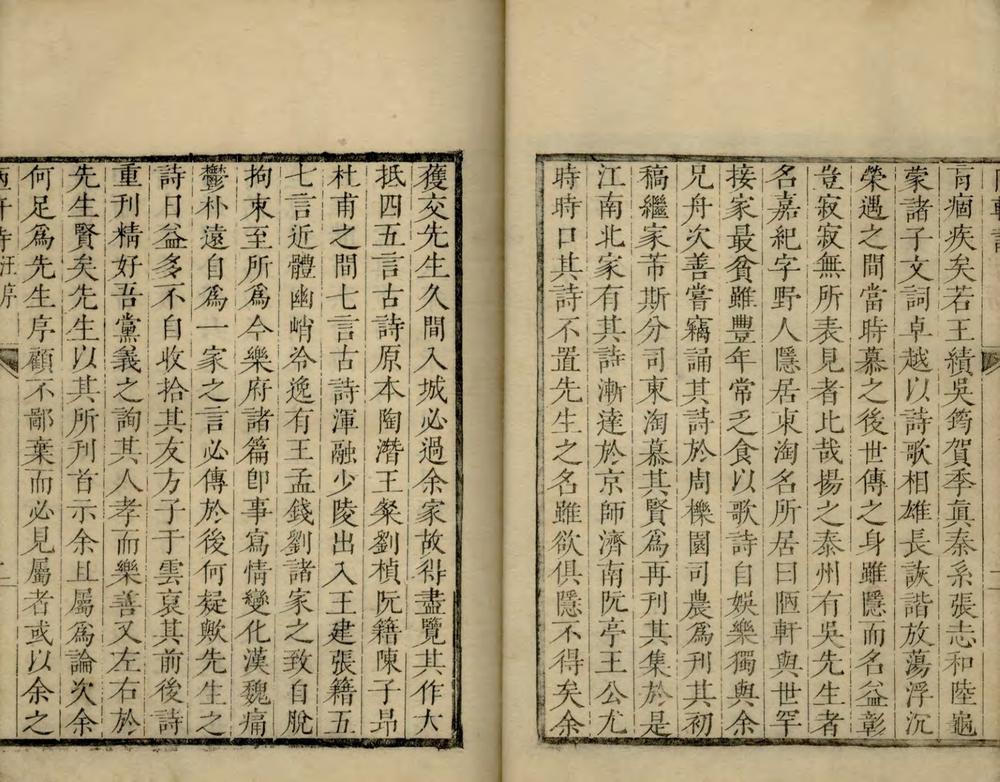 陋軒詩
膏痼疾矣若王績吳筠賀季真秦系張志和陸龜
蒙諸子文詞卓越以詩歌相雄長詼諧放蕩浮沉
榮遇之間當時慕之後世傳之身雖隱而名益彰
豈寂寂無所表見者比哉揚之泰州有吳先生者
名嘉紀字野人隱居東淘名所居曰陋軒與世罕
接家最貧雖豐年常乏食以歌詩自娛樂獨與余
兄舟次善嘗竊誦其詩於周櫟園司農為刊其初
稿繼家芾斯分司東淘慕其賢為再刊其集於是
江南北家有其詩漸達於京師濟南阮亭王公尤
時時口其詩不置先生之名雖欲俱隱不得矣余
獲交先生久間入城必過余家故得盡覽其作大
抵四五言古詩原本陶潛王粲劉楨阮籍陳子昂
杜甫之間七言古詩渾融少陵出入王建張籍五
七言近體幽峭冷逸有王孟錢劉諸家之致自脫
拘束至所為今樂府諸篇即事寫情變化漢魏痛
鬱朴遠自為一家之言必傳於後何疑歟先生之
詩日益多不自收拾其友方子于雲裒其前後詩
重刊精好吾黨義之詢其人孝而樂善又左右於
先生賢矣先生以其所刊首示余且屬為論次余
何足為先生序顧不鄙棄而必見屬者或以余之
陋軒詩汪序
二